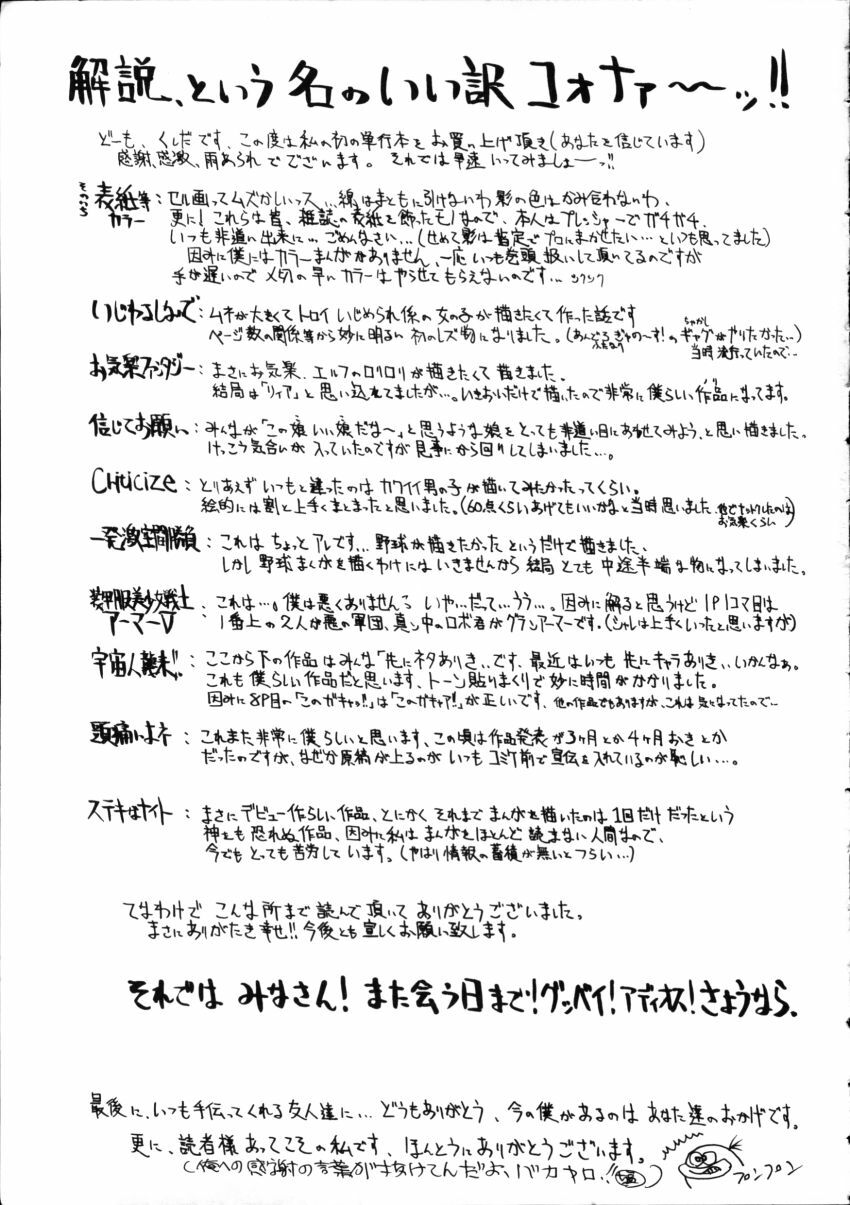 解説、という名のいい訳コォナァ〜〜ッ!!
どーも、くしだです、この度は私の初の単行本をお買い上げ頂き(あなたを信じています)
感謝、感激、雨あられでございます。それでは早速いってみましょーっ!!
表紙等カラー:セル画ってムズかしいっス…線はまともに引けないわ影の色はかみ合わないわ、
更に!これらは皆、雑誌の表紙を飾ったモノなので、本人はプレッシャーでガチガチ、
いつも非道い出来に…ごめんなさい…(せめて影は指定でプロにまかせたい…といつも思ってました)
因みに僕にはカラーまんががありません、一応いつも巻頭扱いして頂いてるのですが
手が遅いのでメ切の早いカラーはやらせてもらえないのです…シクシク
いじわるしないで:ムネが大きくてトロイいじめられ係の女の子が描きたくて作った話です
ページ数の関係等から妙に明るい初のレズ物になりました。(あんでるぎゃの〜す!のギャグがやりたかった…)
当時流行っていたので…
お気楽ファンタジー:まさにお気楽、エルフのロリロリが描きたくて描きました、
結局は「リィア」と思い込れてましたが…。いきおいだけで描いたので非常に僕らしい作品になってます。
信じてお願い:みんなが「この娘いい娘だな〜」と思うような娘をとっても非道い目にあわせてみよう、と思い描きました。
けっこう気合いが入っていたのですが見事にから回りしてしまいました…。
Criticize:とりあえずいつもと違ったのはカワイイ男の子が描いてみたかったってくらい。
絵的には割と上手くまとまったと思いました。(60点くらいあげてもいいかなと当時思いました、
お気楽くらい)
:これはちょっとアレです…野球が描きたかったというだけで描きました、
しかし野球まんがを描くわけにはいきませんから結局とても中途半端な物になってしまいました。
装甲服美少女戦士アーマーV:これは…。僕は悪くありませんっ いや…だって…うう…。因みに解ると思うけど1P1コマ目は
1番上の2人が悪の軍団、真ン中のロボ君がグランアーマーです。(シャレは上手くいったと思いますが)
宇宙人襲来!!:ここから下の作品はみんな「先にネタありき」です、最近はいつも先にキャラありき、いかんなぁ。
これも僕らしい作品だと思います、トーン貼りまくりで妙に時間がかかりました。
因みに8P目の「このガキャッ!」は「このガキャア!」が正しいです、他の作品でもありますが、これは気になってたので…
頭痛いよネ:これまた非常に僕らしいと思います、この頃は作品発表が3ヶ月とか4ヶ月おきとか
だったのですが、なぜか原稿が上るのがいつもコミケ前で宣伝を入れているのが恥しい…。
ステキなナイト:まさにデビュー作らしい作品、とにかくそれまでまんがを描いたのは1回だけだったという
神をも恐れぬ作品、因みに私はまんがをほとんど読まない人間なので、
今でもとっても苦労しています。(やはり情報の蓄積が無いとつらい…)
てなわけでこんな所まで読んで頂いてありがとうございました。
まさにありがたき幸せ!!今後とも宜しくお願い致します。
それではみなさん!また会う日まで!グッバイ!アディオス!さようなら.
最後に、いつも手伝ってくれる友人達に…どうもありがとう、今の僕があるのはあなた達のおかげです。
更に、読者様あってこその私です、ほんとうにありがとうございます。
(俺への感謝の言葉が抜けてんだよ、バカヤロ!!)
プンプン